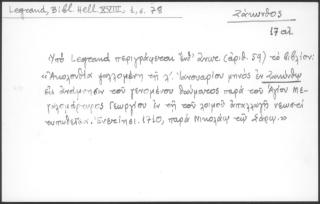 Legrand, Bibl. Hell. XVIII, 1, σ. 78
Ζάκυνθος
17 αἰ.
Ὑπὸ Legrand περιγράφεται ὑπ' ἀριθ. 59) τὸ βιβλίον:
«Ἀκολουθία ψαλλομένη τῇ λ΄. Ἰανουαρίου μηνὸς ἐν Ζακύνθῳ
εἰς ἀνάμνησιν τοῦ γενομένου θαύματος παρὰ τοῦ Ἁγίου Με-
γαλομάρτυρος Γεωργίου ἐν τῇ τοῦ λοιμοῦ ἀπαλλαγῇ νεωστὶ
τυπωθεῖσα. Ἐνετίησι. 1710, παρὰ Νικολάῳ τῷ Σάρῳ.»